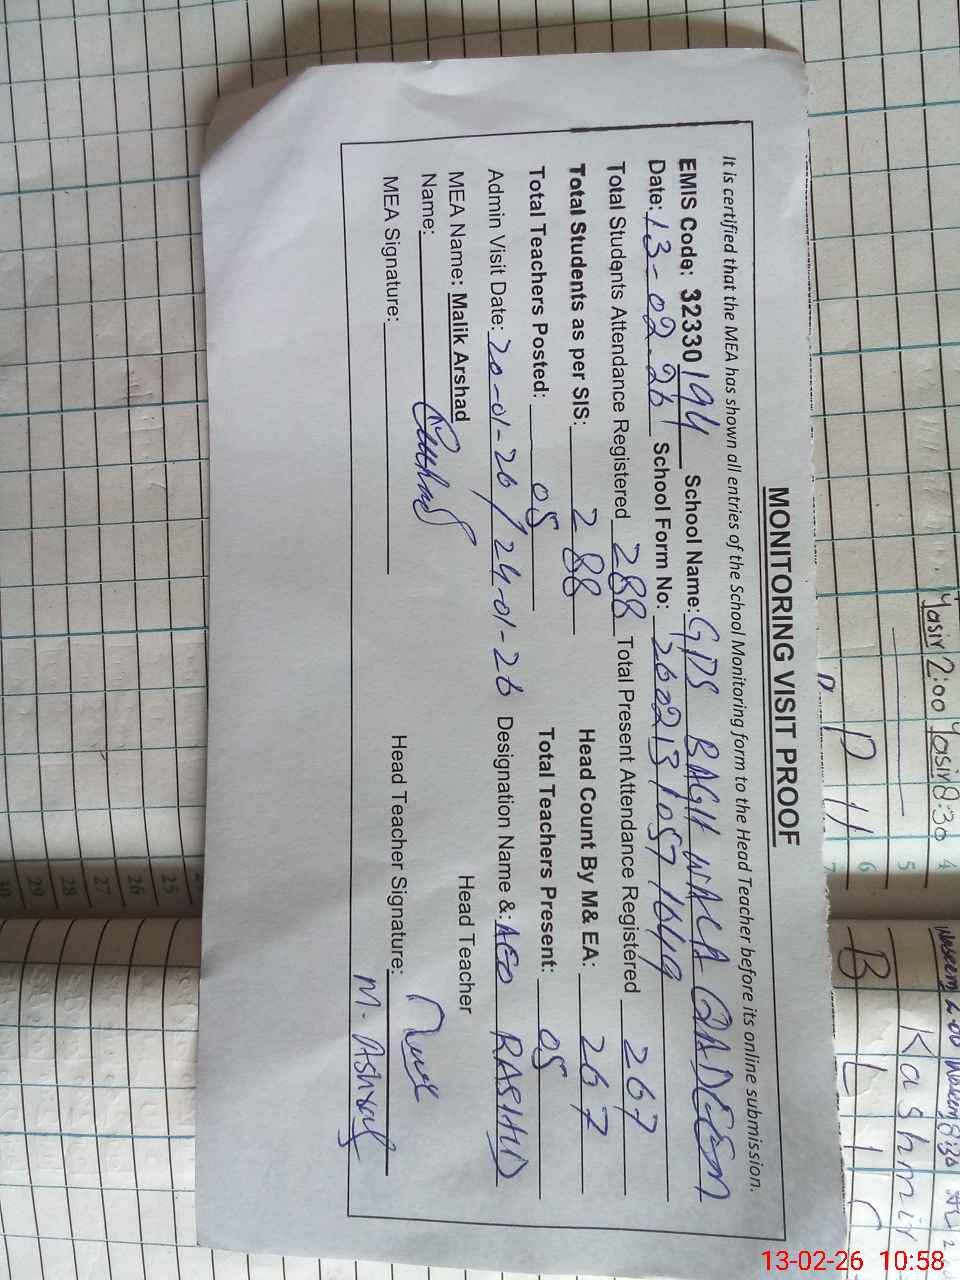 MONITORING VISIT PROOF
It is certified that the MEA has shown all entries of the School Monitoring form to the Head Teacher before its online submission.
EMIS Code: 32330194 School Name: GPS BAGH WALA QADEEM
Date: 13-02-26 School Form No: 260213105716449
Total Students Attendance Registered 288 Total Present Attendance Registered 267
Total Students as per SIS: 288 Head Count By M& EA: 267
Total Teachers Posted: 05 Total Teachers Present: 05
Admin Visit Date: 20-01-26 / 24-01-26 Designation Name &: AEO RASHID
MEA Name: Malik Arshad Head Teacher
Name:
MEA Signature: Head Teacher Signature: M. Ashraf
Yasir 2:00 Yasir 8:30
4
5
6
7
P H
25
26
27
28
29
30
Waseem 2:00 Waseem 8:30
Kashmir
13-02-26 10:58